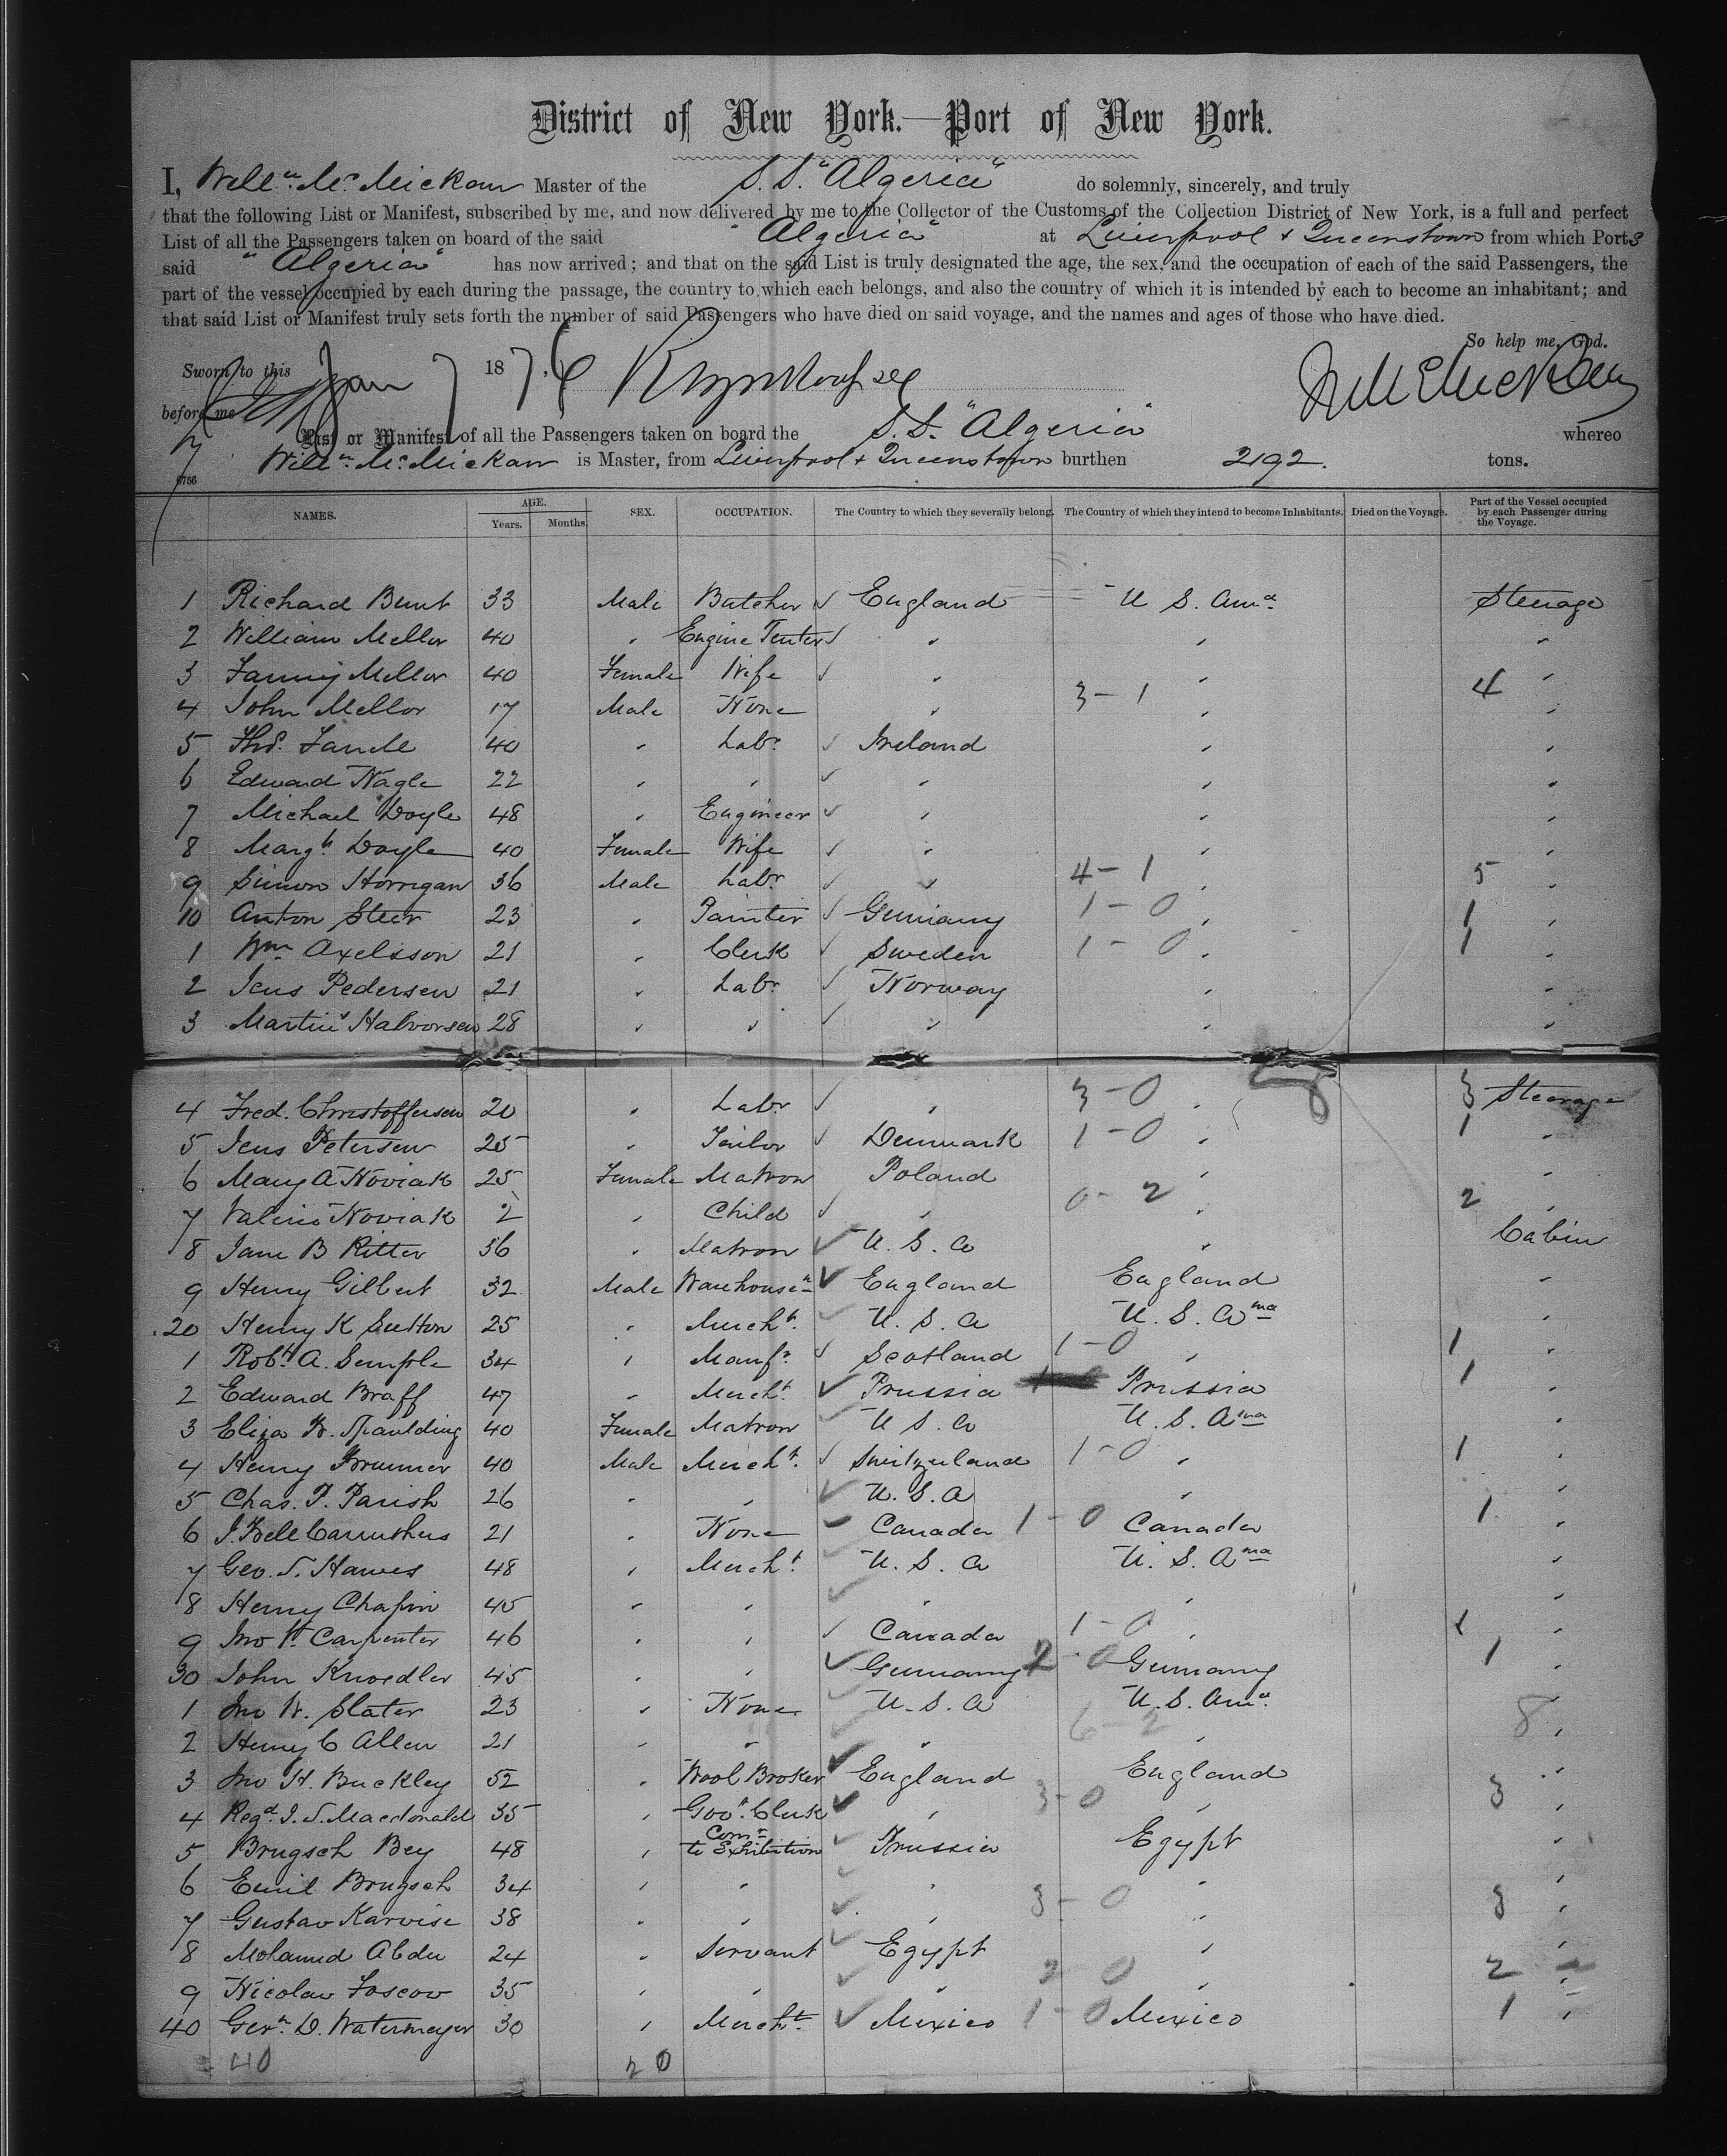 District of New York.—Port of New York.
I, Willm. Mc. Mickan Master of the S.S. "Algeria" do solemnly, sincerely, and truly
that the following List or Manifest, subscribed by me, and now delivered by me to the Collector of the Customs of the Collection District of New York, is a full and perfect
List of all the Passengers taken on board of the said "Algeria" at Liverpool & Queenstown from which Ports
said "Algeria" has now arrived; and that on the said List is truly designated the age, the sex, and the occupation of each of the said Passengers, the
part of the vessel occupied by each during the passage, the country to which each belongs, and also the country of which it is intended by each to become an inhabitant; and
that said List or Manifest truly sets forth the number of said Passengers who have died on said voyage, and the names and ages of those who have died.
So help me, God.
Sworn to this Jan 7 1876
before me
List or Manifest of all the Passengers taken on board the S.S. "Algeria" whereo
Willm. Mc. Mickan is Master, from Liverpool & Queenstown burthen 2192. tons.
6756
NAMES. AGE. Years. Months. SEX. OCCUPATION. The Country to which they severally belong. The Country of which they intend to become Inhabitants. Died on the Voyage. Part of the Vessel occupied by each Passenger during the Voyage.
1 Richard Bunt 33 Male Butcher ✓ England U S. Ama. Steerage
2 William Mellor 40 " Engine Tenter ✓ " " "
3 Fanny Mellor 40 Female Wife ✓ " " "
4 John Mellor 17 Male None " 3-1 " 4 "
5 Thos. 40 " Labr. ✓ Ireland " "
6 Edward Nagle 22 " " ✓ " " "
7 Michael Doyle 48 " Engineer ✓ " " "
8 Margt. Doyle 40 Female Wife ✓ " " "
9 Simon Horrigan 36 Male Labr. ✓ " 4-1 " 5 "
10 Anton Steer 23 " Painter ✓ Germany 1-0 " 1 "
1 Wm. Axelsson 21 " Clerk ✓ Sweden 1-0 " 1 "
2 Jens Pedersen 21 " Labr. ✓ Norway " "
3 Martin Halvorsen 28 " " ✓ " " "
4 Fred. Christoffersen 20 " Labr ✓ " 3-0 " 3 Steerage
5 Jens Petersen 25 " Tailor ✓ Denmark 1-0 " 1 "
6 Mary A Noviak 25 Female Matron Poland " "
7 Valerio Noviak 2 " Child ✓ " 0-2 " 2 "
8 Jane B Ritter 36 " Matron ✓ U. S. A " Cabin
9 Henry Gilbert 32 Male Warehousen ✓ England England "
20 Henry K Sutton 25 " Mercht. ✓ U. S. A U. S. Ama "
1 Robt. A. Semple 34 " Manfr. ✓ Scotland 1-0 " 1 "
2 Edward Braff 47 " Mercht. ✓ Prussia Prussia 1 "
3 Eliza W. Spaulding 40 Female Matron ✓ U S. A U. S. Ama "
4 Henry Brunner 40 Male Mercht. ✓ Switzerland 1-0 " 1 "
5 Chas. P. Parish 26 " " ✓ U. S. A " "
6 J. Bell Carruthers 21 " None ✓ Canada 1-0 Canada 1 "
7 Geo. S. Hawes 48 " Mercht. ✓ U. S. A U. S. Ama "
8 Henry Chapin 45 " " ✓ " " "
9 Jno H. Carpenter 46 " " ✓ Canada 1-0 " 1 "
30 John Knoedler 45 " " ✓ Germany 0 Germany 1 "
1 Jno W. Slater 23 " None ✓ U. S. A U. S. Ama. "
2 Henry C Allen 21 " " ✓ " 6-2 " 8 "
3 Jno H. Buckley 52 " Wool Broker ✓ England England "
4 Regd. J. S. Macdonald 35 " Govt. Clerk ✓ " 3-0 " 3 "
5 Brugsch Bey 48 " Comr. to Exhibition ✓ Prussia Egypt "
6 Emil Brugsch 34 " " ✓ " " "
7 Gustav Karvise 38 " " ✓ " 3-0 " 3 "
8 Mohamed Abdu 24 " Servant ✓ Egypt " "
9 Nicolas Foscov 35 " " ✓ " 2 0 " 2 "
40 D. Watermeyer 30 " Mercht. ✓ Mexico 1-0 Mexico 1 "
40 20